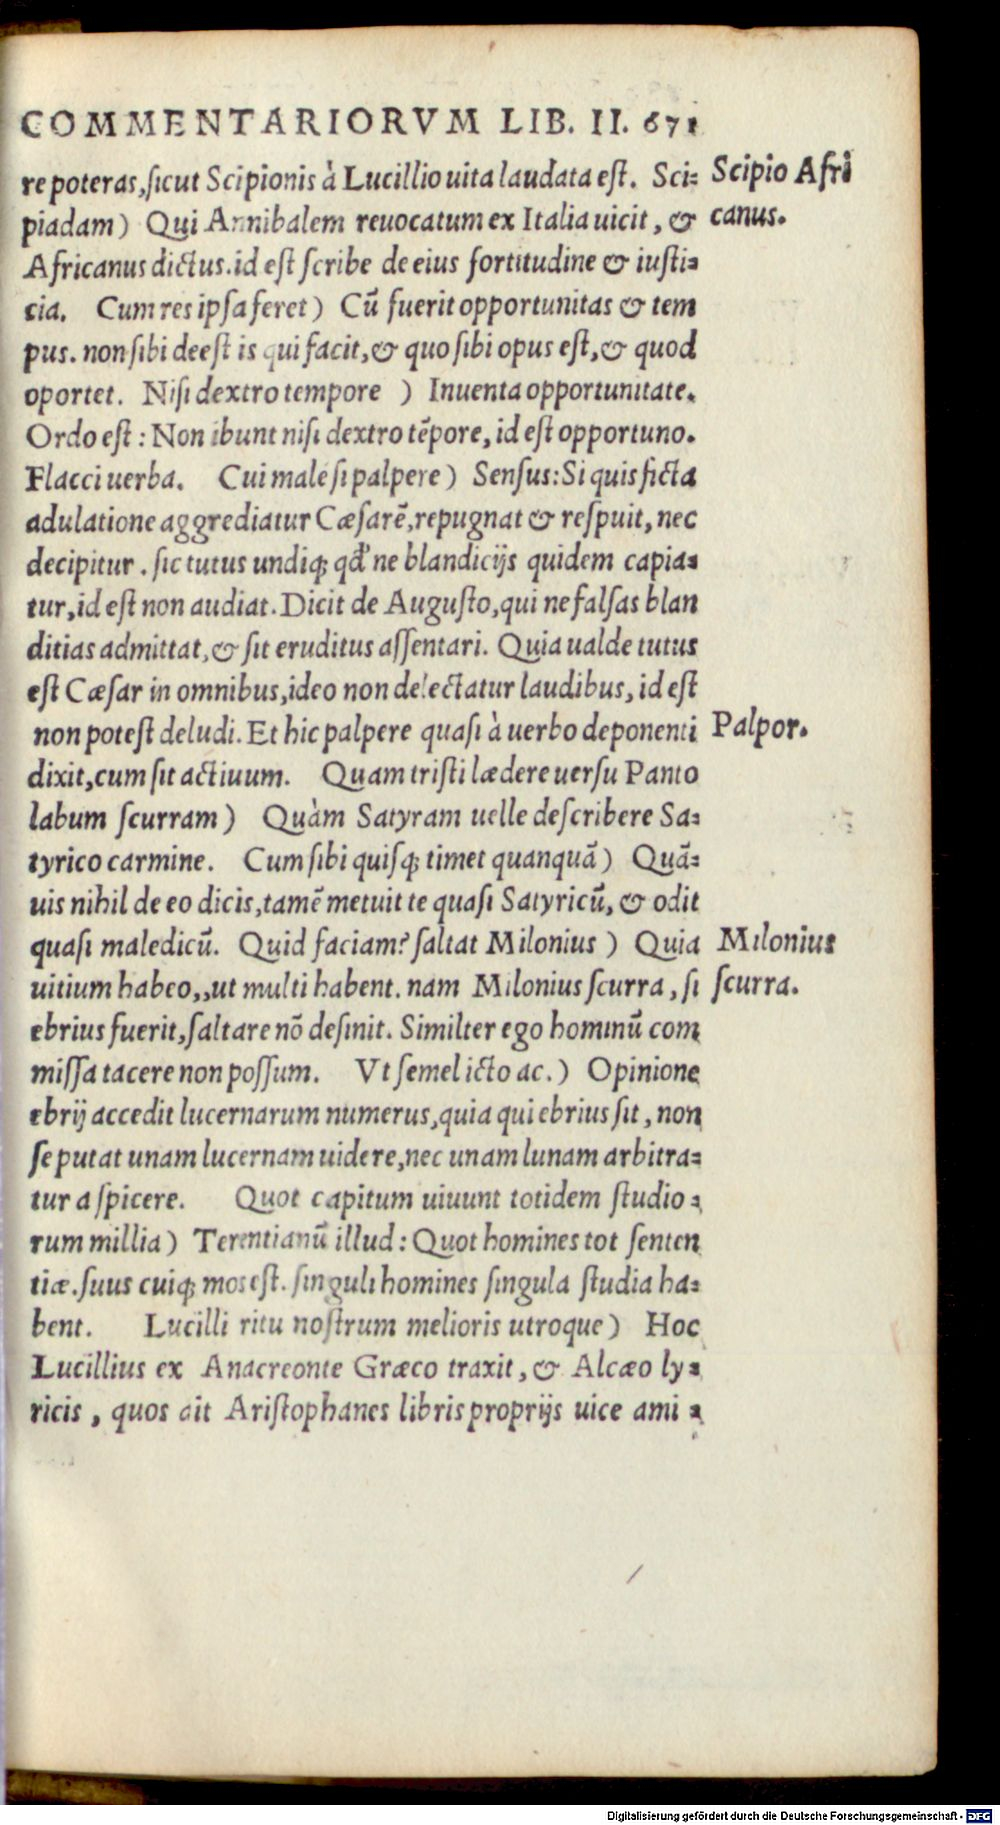 COMMENTARIORVM LIB. II. 671
re poteras, sicut Scipionis à Lucillio uita laudata est. Sci-
piadam) Qui Annibalem reuocatum ex Italia uicit, &
Africanus dictus. id est scribe de eius fortitudine & iusti-
cia. Cum res ipsa feret) Cū fuerit opportunitas & tem
pus. non sibi deest is qui facit, & quo sibi opus est, & quod
oportet. Nisi dextro tempore ) Inuenta opportunitate.
Ordo est: Non ibunt nisi dextro tēpore, id est opportuno.
Flacci uerba. Cui male si palpere) Sensus: Si quis ficta
adulatione aggrediatur Cæsarē, repugnat & respuit, nec
decipitur. sic tutus undiqꝫ qđ ne blandicijs quidem capia-
tur, id est non audiat. Dicit de Augusto, qui ne falsas blan
ditias admittat, & sit eruditus assentari. Quia ualde tutus
est Cæsar in omnibus, ideo non delectatur laudibus, id est
non potest deludi. Et hic palpere quasi à uerbo deponenti
dixit, cum sit actiuum. Quam tristi lædere uersu Panto
labum scurram) Quàm Satyram uelle describere Sa-
tyrico carmine. Cum sibi quisqꝫ timet quanquā) Quā-
uis nihil de eo dicis, tamē metuit te quasi Satyricū, & odit
quasi maledicū. Quid faciam? saltat Milonius ) Quia
uitium habeo,, ut multi habent. nam Milonius scurra, si
ebrius fuerit, saltare nō desinit. Similter ego hominū com
missa tacere non possum. Vt semel icto ac.) Opinione
ebrij accedit lucernarum numerus, quia qui ebrius sit, non
se putat unam lucernam uidere, nec unam lunam arbitra-
tur aspicere. Quot capitum uiuunt totidem studio-
rum millia) Terentianū illud: Quot homines tot senten
tiæ. suus cuiqꝫ mos est. singuli homines singula studia ha-
bent. Lucilli ritu nostrum melioris utroque) Hoc
Lucillius ex Anacreonte Græco traxit, & Alcæo ly-
ricis, quos ait Aristophanes libris proprijs uice ami-
Scipio Afri
canus.
Palpor.
Milonius
scurra.
Digitalisierung gefördert durch die Deutsche Forschungsgemeinschaft - DFG